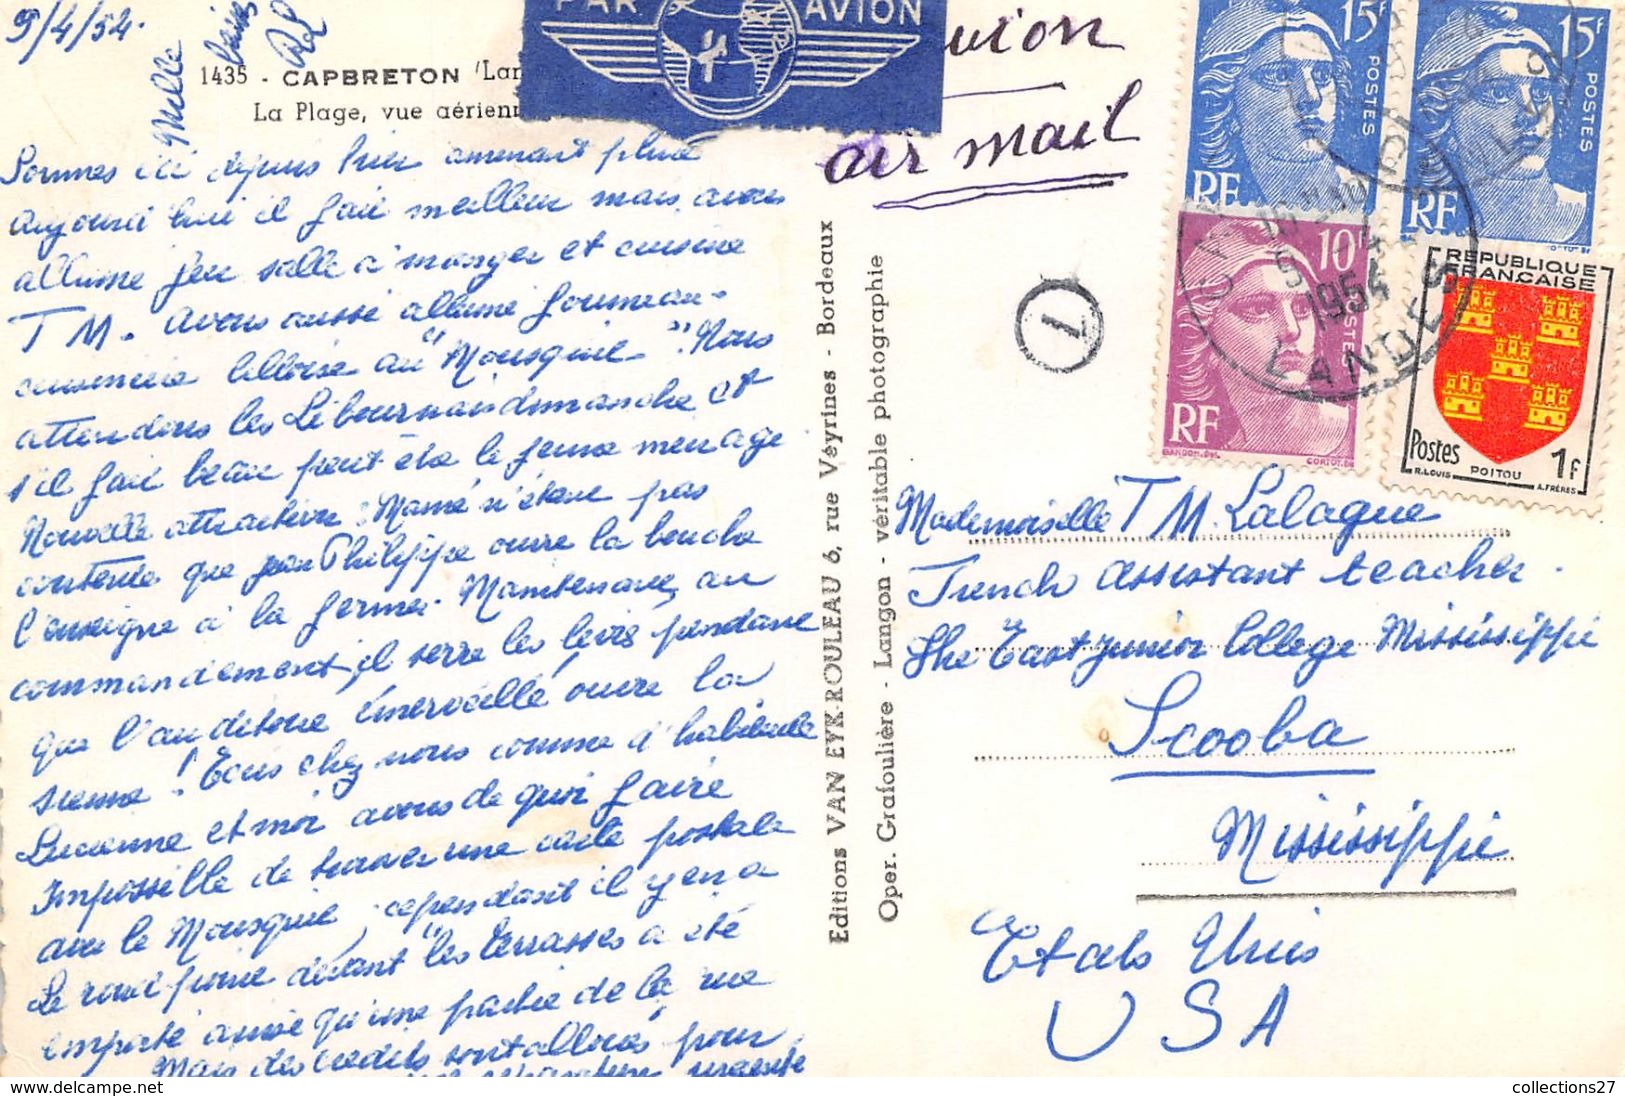 9/4/54.
Mille
PAR AVION
1435 - CAPBRETON (Lan
La Plage, vue aérienn
Sommes ici depuis hier
aujourd'hui il fait meilleur mais avons
allumé feu salle à manger et cuisine
T M. avons aussi allumé fourneau
cuisinière lilloise au "Mousquie". Nous
attendons les Libournais dimanche et
s'il fait beau peut-être le jeune ménage
Nouvelle attraction : Mamé n'étant pas
contente que Jean Philippe ouvre la bouche
l'enseigne à la fermer. Maintenant, au
commandement, il serre les lèvres pendant
que l'auditoire émerveillé ouvre la
sienne ! Tous chez nous comme d'habitude
Lucienne et moi avons de quoi faire
Impossible de trouver une carte postale
avec le Mousquie, cependant il y en a
Le rond point devant "les Terrasses a été
emporté ainsi qu'une partie de la rue
Mais des crédits sont alloués pour
réparation urgente
Editions VAN EYK-ROULEAU 6, rue Veyrines - Bordeaux
Oper. Grafoulière - Langon - véritable photographie
avion
air mail
15F
POSTES
RF
15F
POSTES
RF
10F
POSTES
RF
GANDON.DEL
CORTOT.SC
REPUBLIQUE
FRANCAISE
Postes
1F
R.LOUIS POITOU A.FRERES
9 4
1954
LANDES
1
Mademoiselle T M. Lalague
French assistant teacher.
The East Junior College Mississippi
Scooba
Mississippi
Etats Unis
USA
collections27